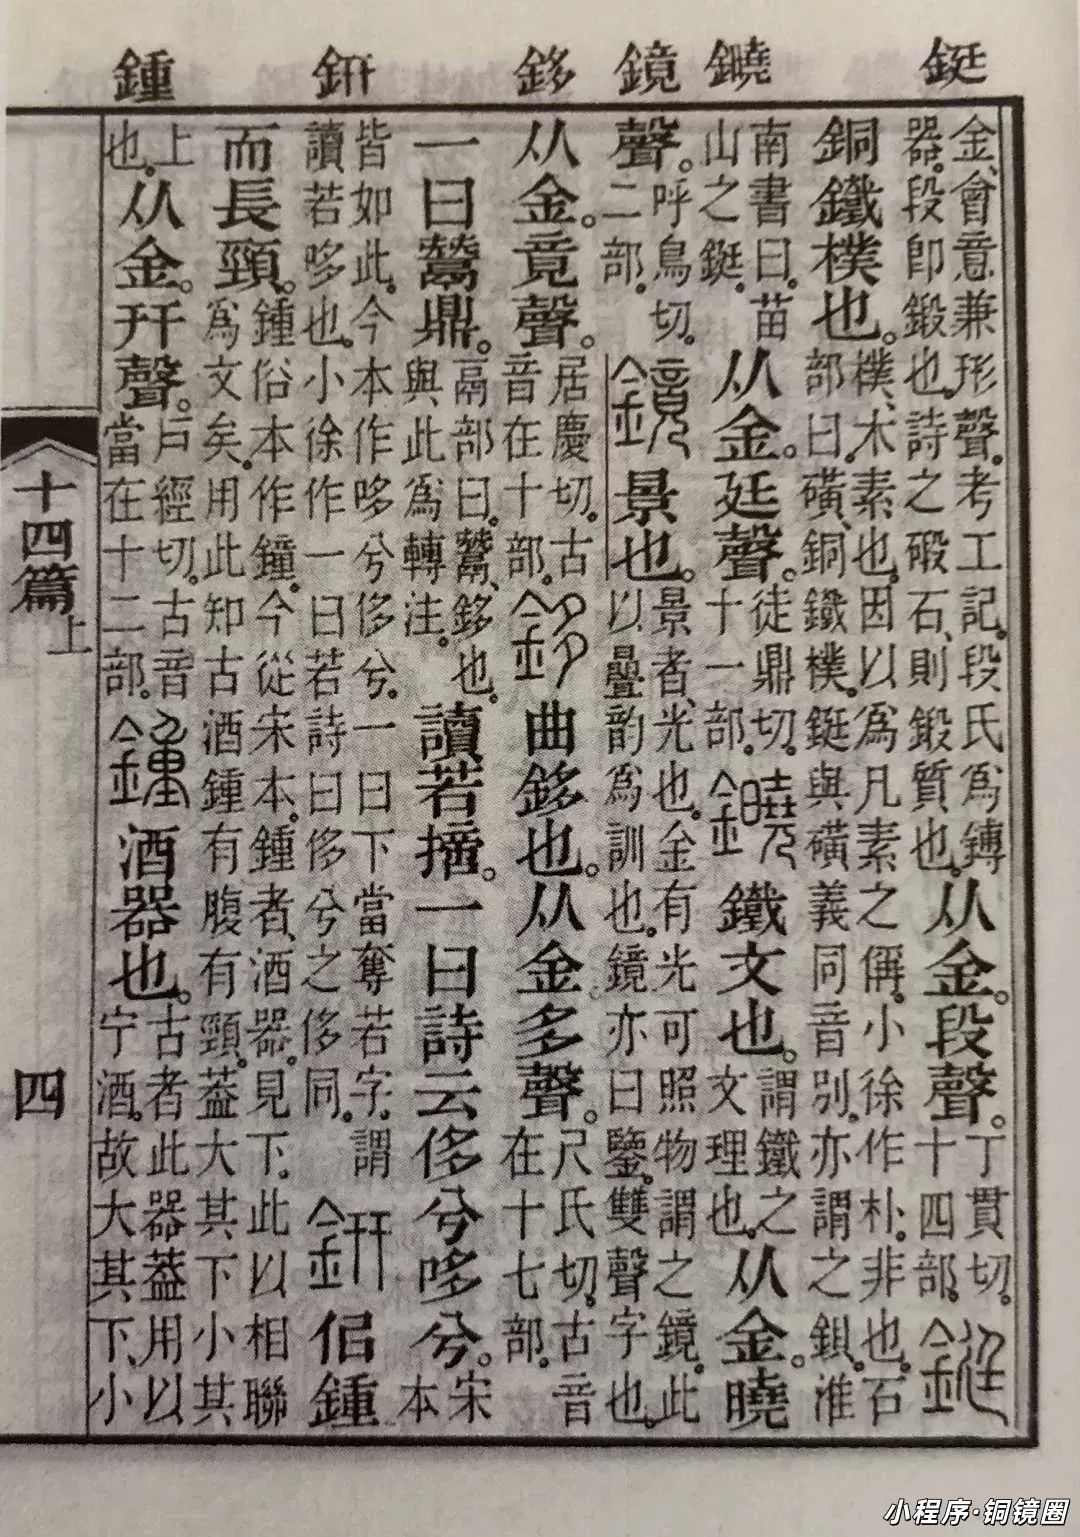 鋌 䥵 鏡 鉹 鈃 鍾
金、會意兼形聲。考工記。段氏爲鎛
器。段卽鍛也。詩之碫石、則鍛質也。
从金。段聲。
丁貫切。
十四部。
鋌
銅鐵樸也。
樸、木素也。因以爲凡素之偁。小徐作朴。非也。石
部曰。磺、銅鐵樸。鋌與磺義同音別。亦謂之鋇。淮
南書曰。苗
山之鋌。
从金。廷聲。
徒鼎切。
十一部。
䥵
鐵文也。
謂鐵之
文理也。
从金。曉
聲。
呼鳥切。
二部。
鏡
景也。
景者、光也。金有光可照物謂之鏡。此
以曡韵爲訓也。鏡亦曰鑒。雙聲字也。
从金。竟聲。
居慶切。古
音在十部。
鉹
曲鉹也。从金多聲。
尺氏切。古音
在十七部。
一曰鬵鼎。
鬲部曰。鬵、鉹也。
與此爲轉注。
讀若摛。一曰詩云侈兮哆兮。
宋
本
皆如此。今本作哆兮侈兮。一曰下當奪若字。謂
讀若哆也。小徐作一曰若詩曰侈兮之侈同。
鈃
佀鍾
而長頸。
鍾俗本作鐘。今從宋本。鍾者、酒器。見下。此以相聯
爲文矣。用此知古酒鍾有腹有頸。葢大其下小其
上
也。
从金。幵聲。
戶經切。古音
當在十二部。
鍾
酒器也。
古者此器葢用以
宁酒。故大其下、小
十四篇上
四
小程序·铜镜圈